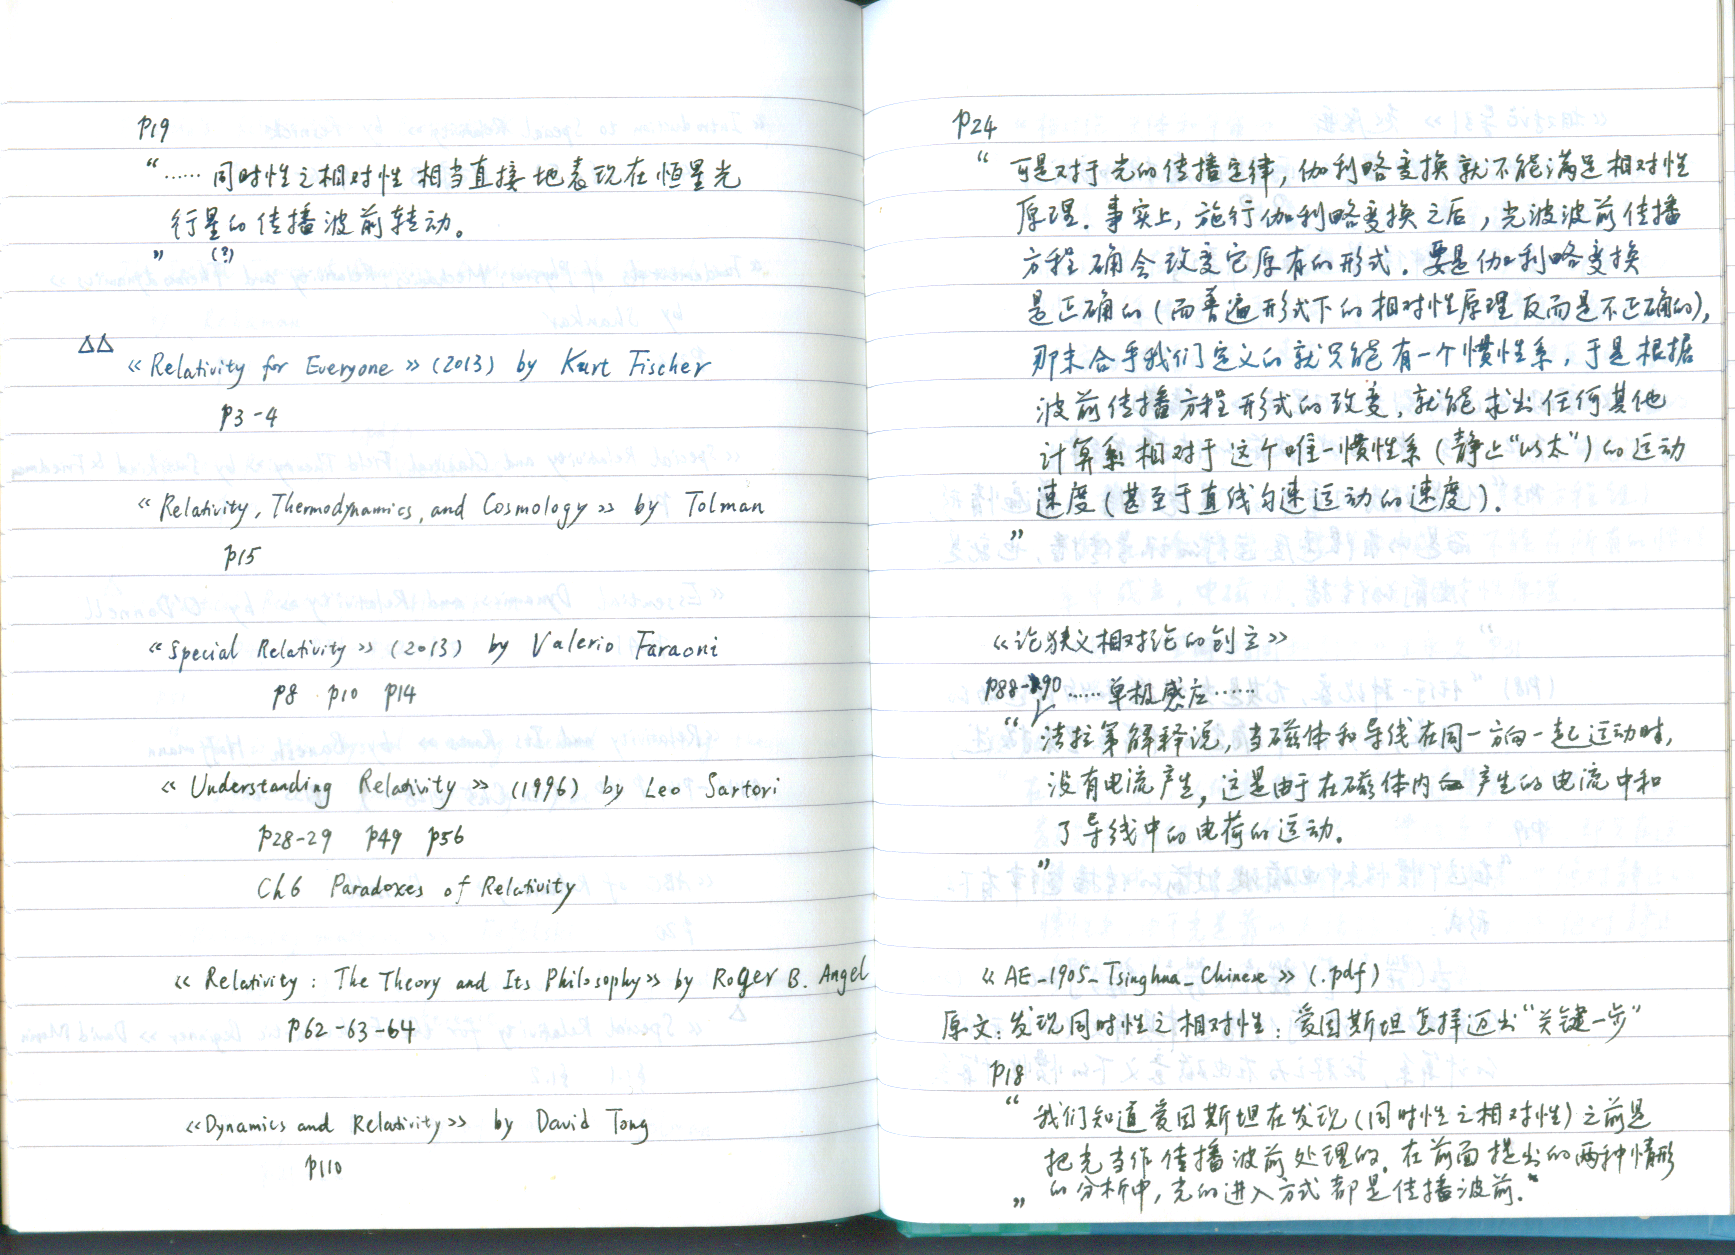 p19
“ …… 同时性之相对性 相当直接地表现在恒星光
行星的传播波前转动。
” (?)
△△
《Relativity for Everyone》(2013) by Kurt Fischer
p3-4
《Relativity, Thermodynamics, and Cosmology》 by Tolman
p15
《Special Relativity》(2013) by Valerio Faraoni
p8 p10 p14
《Understanding Relativity》(1996) by Leo Sartori
p28-29 p49 p56
Ch6 Paradoxes of Relativity
《Relativity: The Theory and Its Philosophy》 by Roger B. Angel
p62-63-64
《Dynamics and Relativity》 by David Tong
p110
p24
“ 可是对于光的传播定律, 伽利略变换就不能满足相对性
原理. 事实上, 施行伽利略变换之后, 光波波前传播
方程确会改变它原有的形式. 要是伽利略变换
是正确的 (而普遍形式下的相对性原理反而是不正确的),
那末合乎我们定义的就只能有一个惯性系, 于是根据
波前传播方程形式的改变, 就能求出任何其他
计算系相对于这个唯一惯性系 (静止“以太”) 的运动
速度 (甚至于直线匀速运动的速度).
”
《论狭义相对论的创立》
p88-90 …… 单极感应 ……
“ 法拉第解释说, 当磁体和导线在同一方向一起运动时,
没有电流产生, 这是由于在磁体内产生的电流中和
了导线中的电荷的运动.
”
《AE_1905_Tsinghua_Chinese》(.pdf)
原文: 发现同时性之相对性: 爱因斯坦怎样迈出“关键一步”
p18
“ 我们知道爱因斯坦在发现 (同时性之相对性) 之前是
把光当作传播波前处理的. 在前面提出的两种情形
的分析中, 光的进入方式都是传播波前.
”